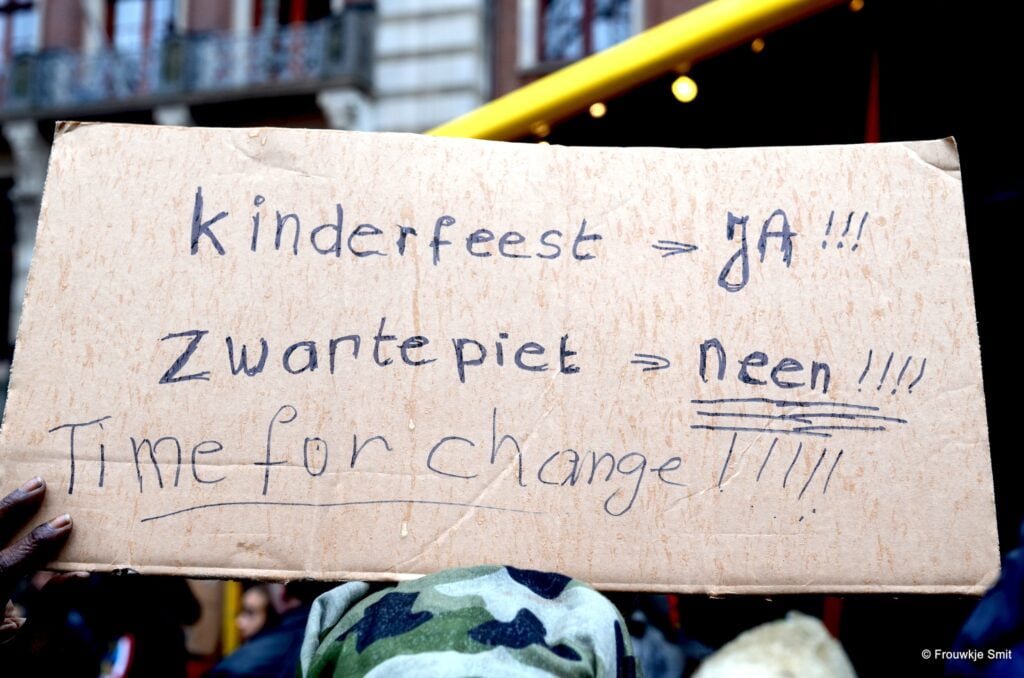 kinderfeest => JA !!!
Zwarte piet => neen !!!!
Time for change !!!!!
© Frouwkje Smit